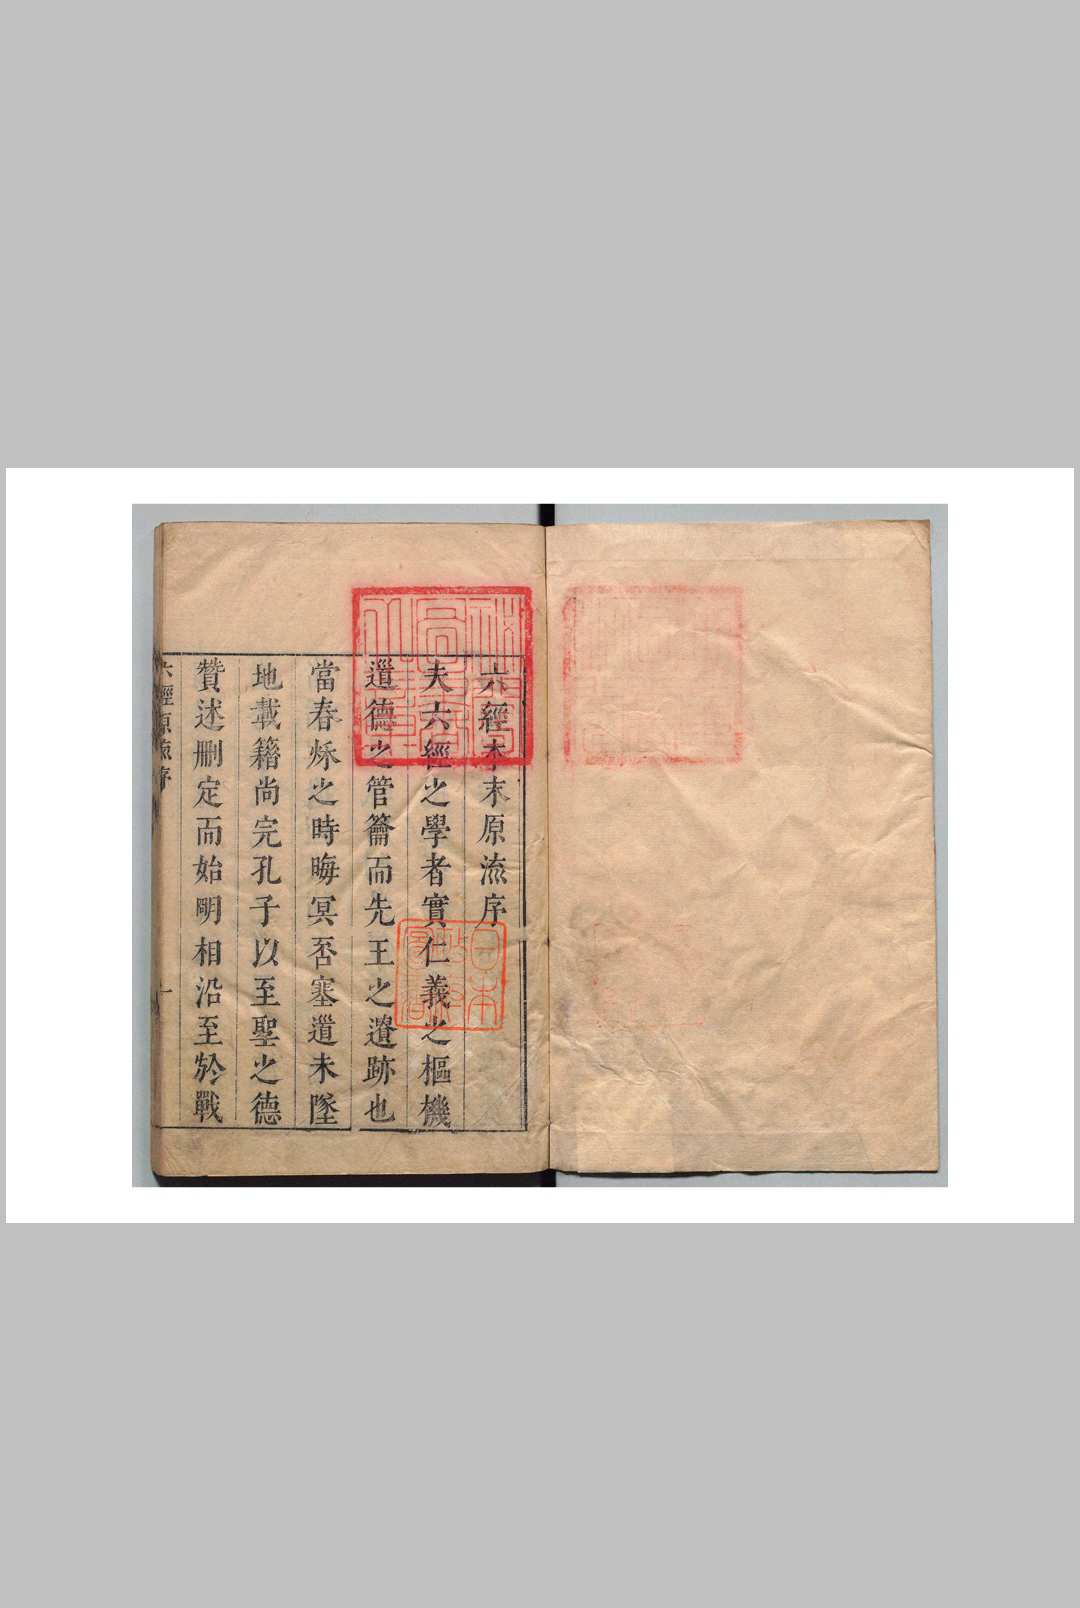 六經本末原流序
夫六經之學者實仁義之樞機
道德之管籥而先王之遺跡也
當春秌之時晦冥否塞道未墜
地載籍尚完孔子以至聖之德
贊述刪定而始明相沿至於戰
六經原流序 一
日本政府圖書